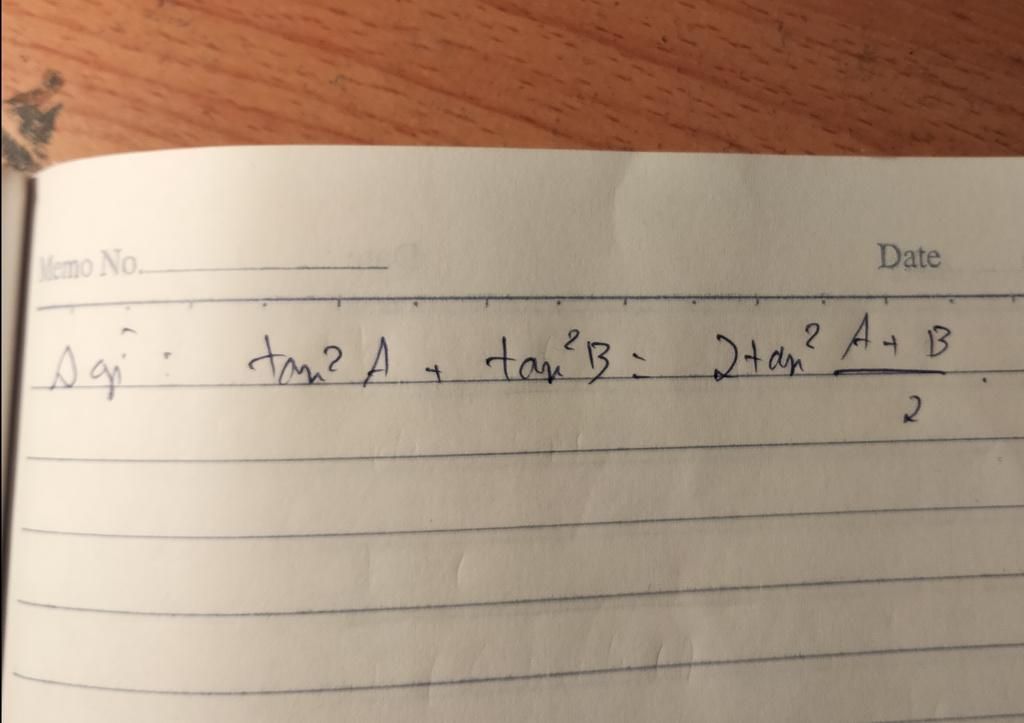 Memo No. Date
Δ gì: tan² A + tan² B = 2tan² (A + B)/2.